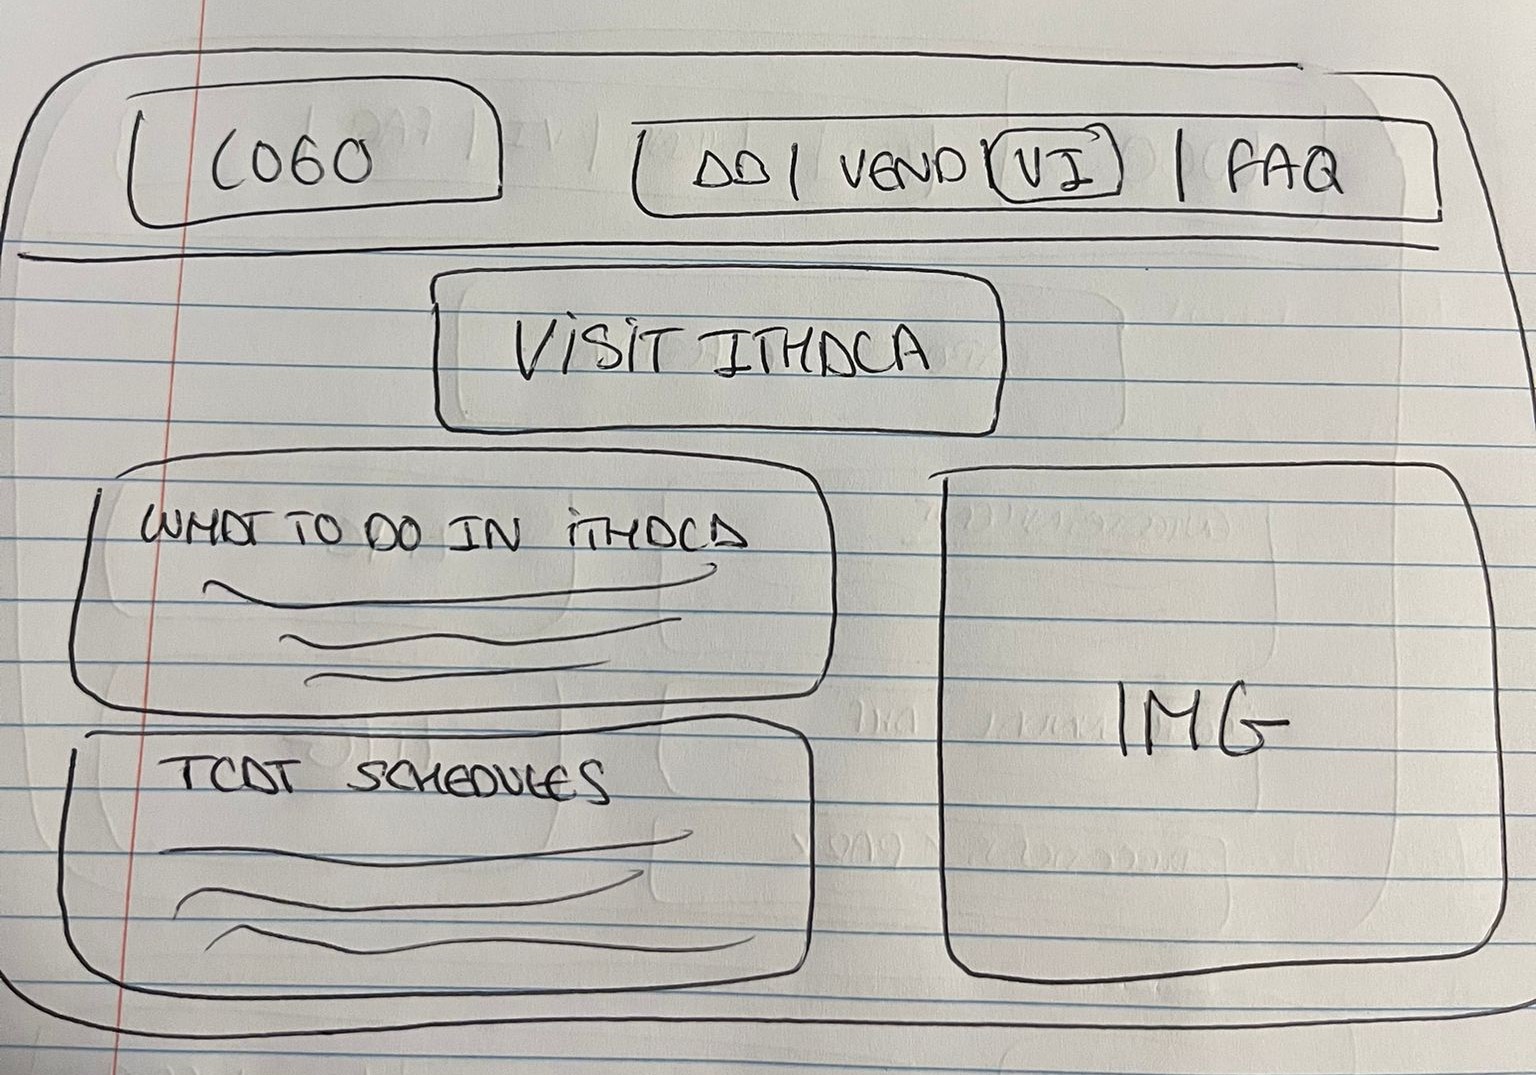 LOGO
DD | VEND | VI | FAQ
VISIT ITHACA
WHAT TO DO IN ITHACA
TCAT SCHEDULES
IMG